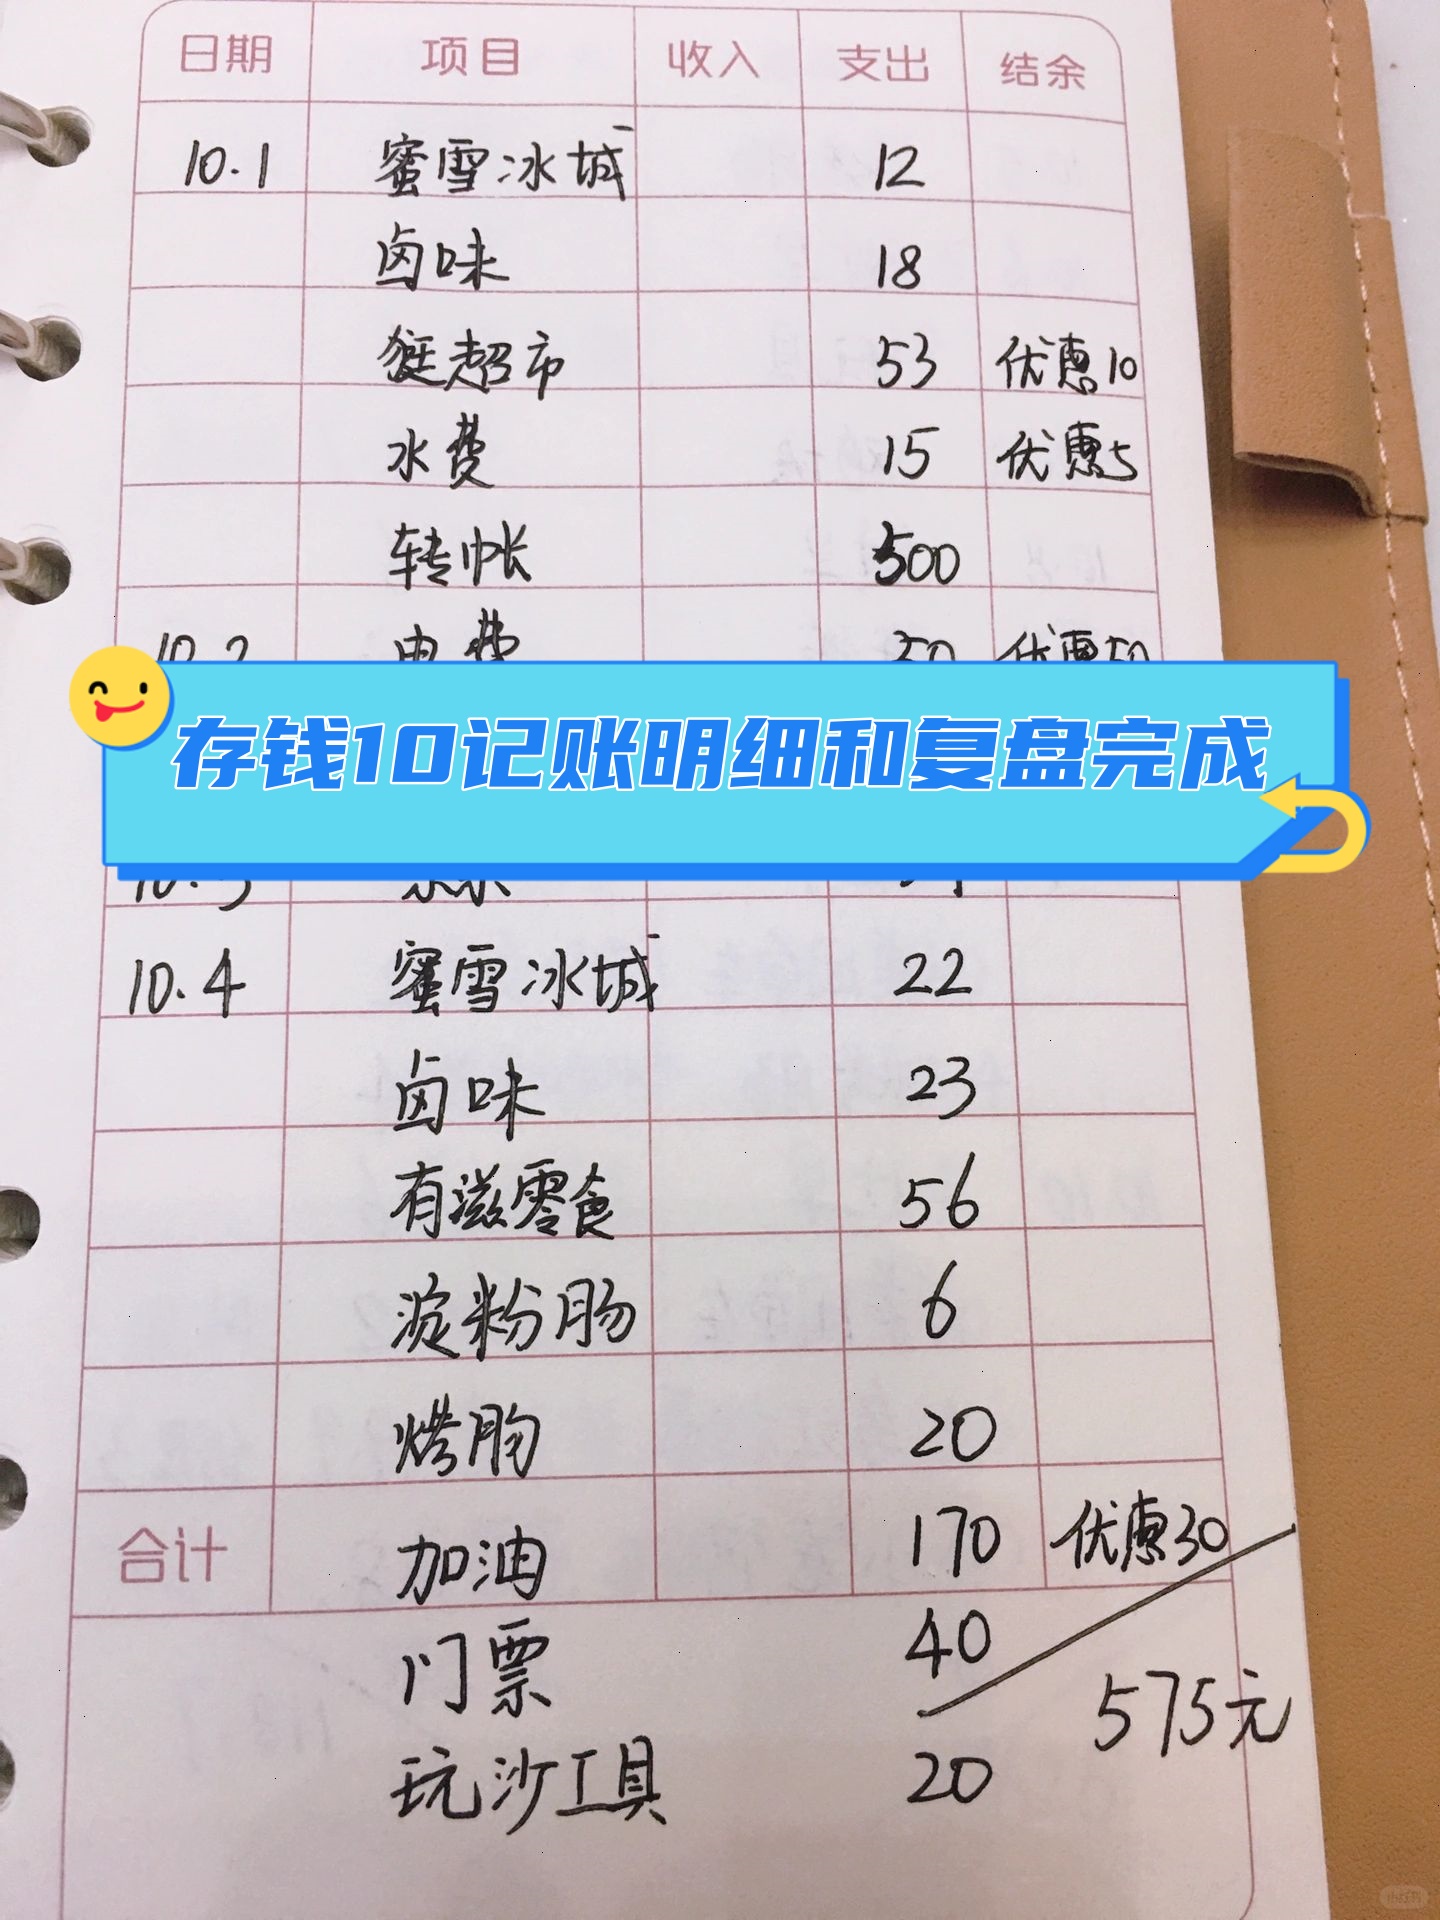 日期 项目 收入 支出 结余
10.1 蜜雪冰城 12
卤味 18
超市 53 优惠10
水费 15 优惠5
转帐 500
10.2 电费 50 优惠50
存钱10记账明细和复盘完成
10.3
10.4 蜜雪冰城 22
卤味 23
有滋零食 56
淀粉肠 6
烤肠 20
合计 加油 170 优惠30
门票 40
575元
玩沙工具 20
小红书